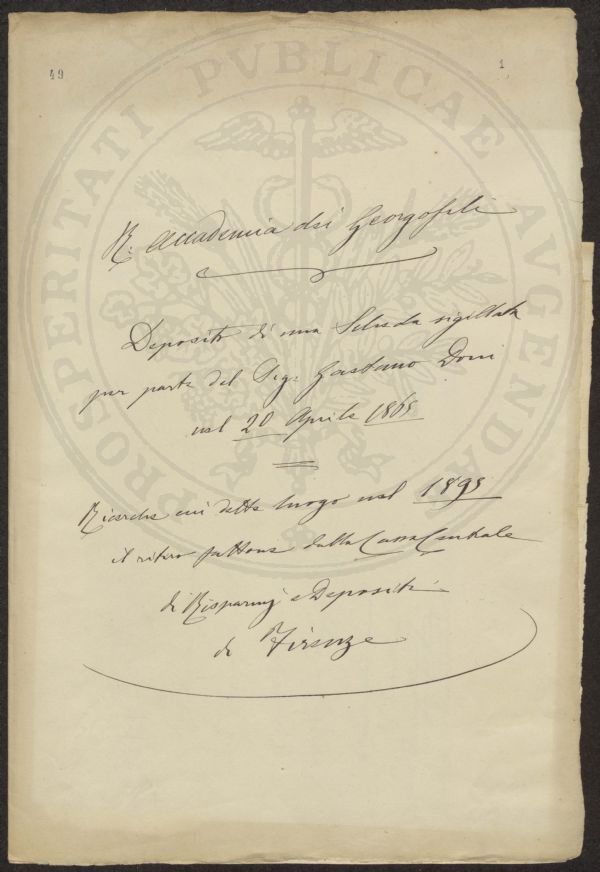 49
1
PROSPERITATI PVBLICAE AVGENDAE
R. Accademia dei Georgofili
Deposito di una Scheda sigillata
per parte del Sigr Gaetano Doni
nel 20 Aprile 1865
Ricerche cui dette luogo nel 1895
il ritiro fattone dalla Cassa Centrale
di Risparmj e Depositi
di Firenze